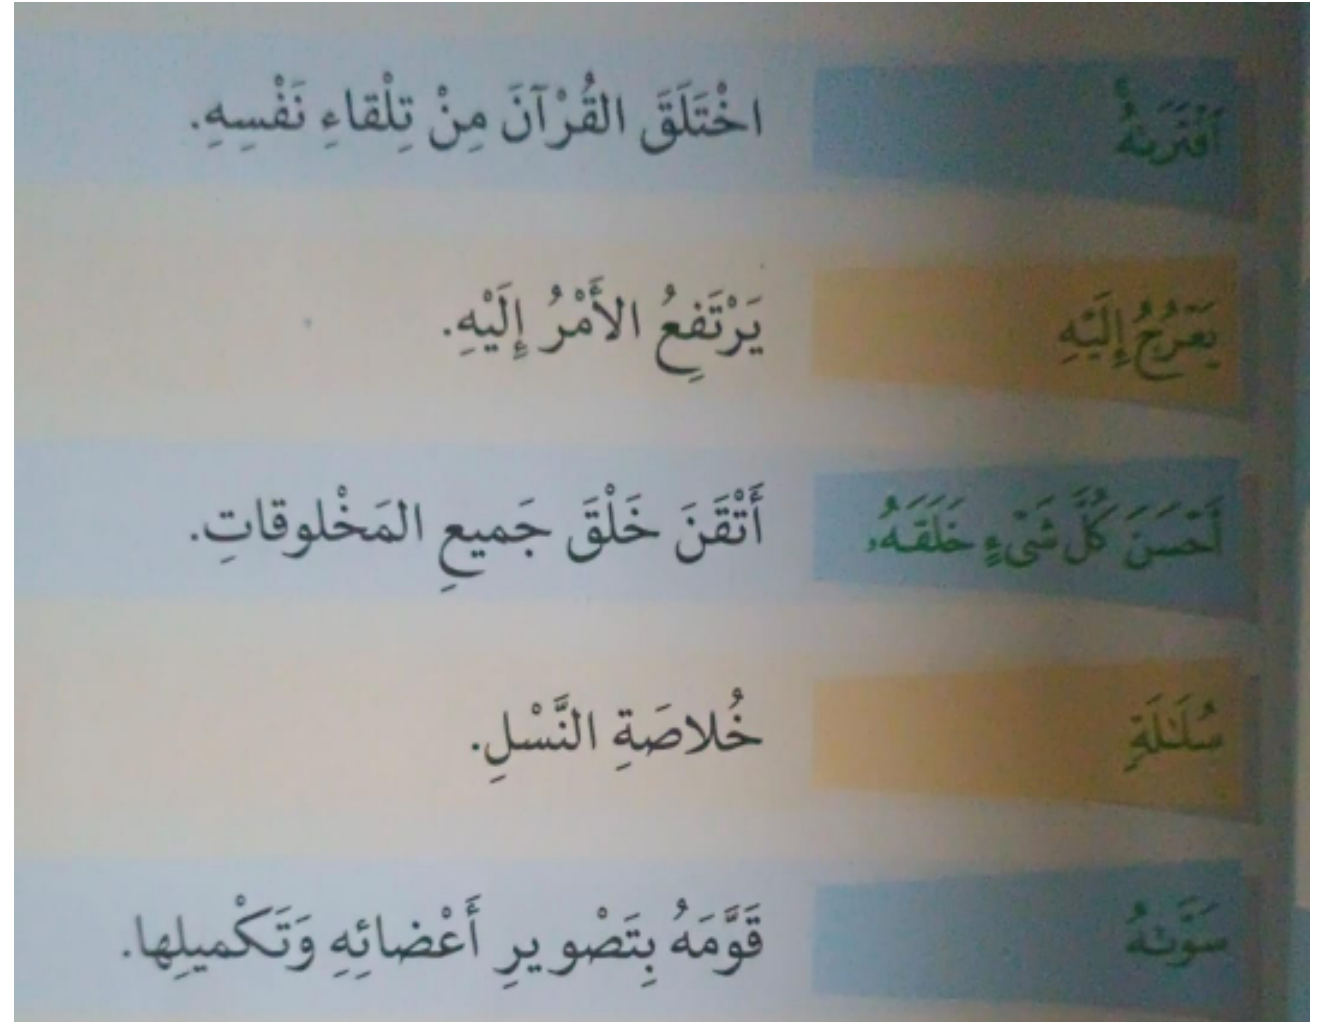 ٱفْتَرَىٰهُ ۚ اخْتَلَقَ القُرْآنَ مِنْ تِلْقاءِ نَفْسِهِ.
يَعْرُجُ إِلَيْهِ يَرْتَفِعُ الأَمْرُ إِلَيْهِ.
أَحْسَنَ كُلَّ شَىْءٍ خَلَقَهُۥ أَتْقَنَ خَلْقَ جَميعِ المَخْلوقاتِ.
سُلَٰلَةٍ خُلاصَةِ النَّسْلِ.
سَوَّىٰهُ قَوَّمَهُ بِتَصْويرِ أَعْضائِهِ وَتَكْميلِها.